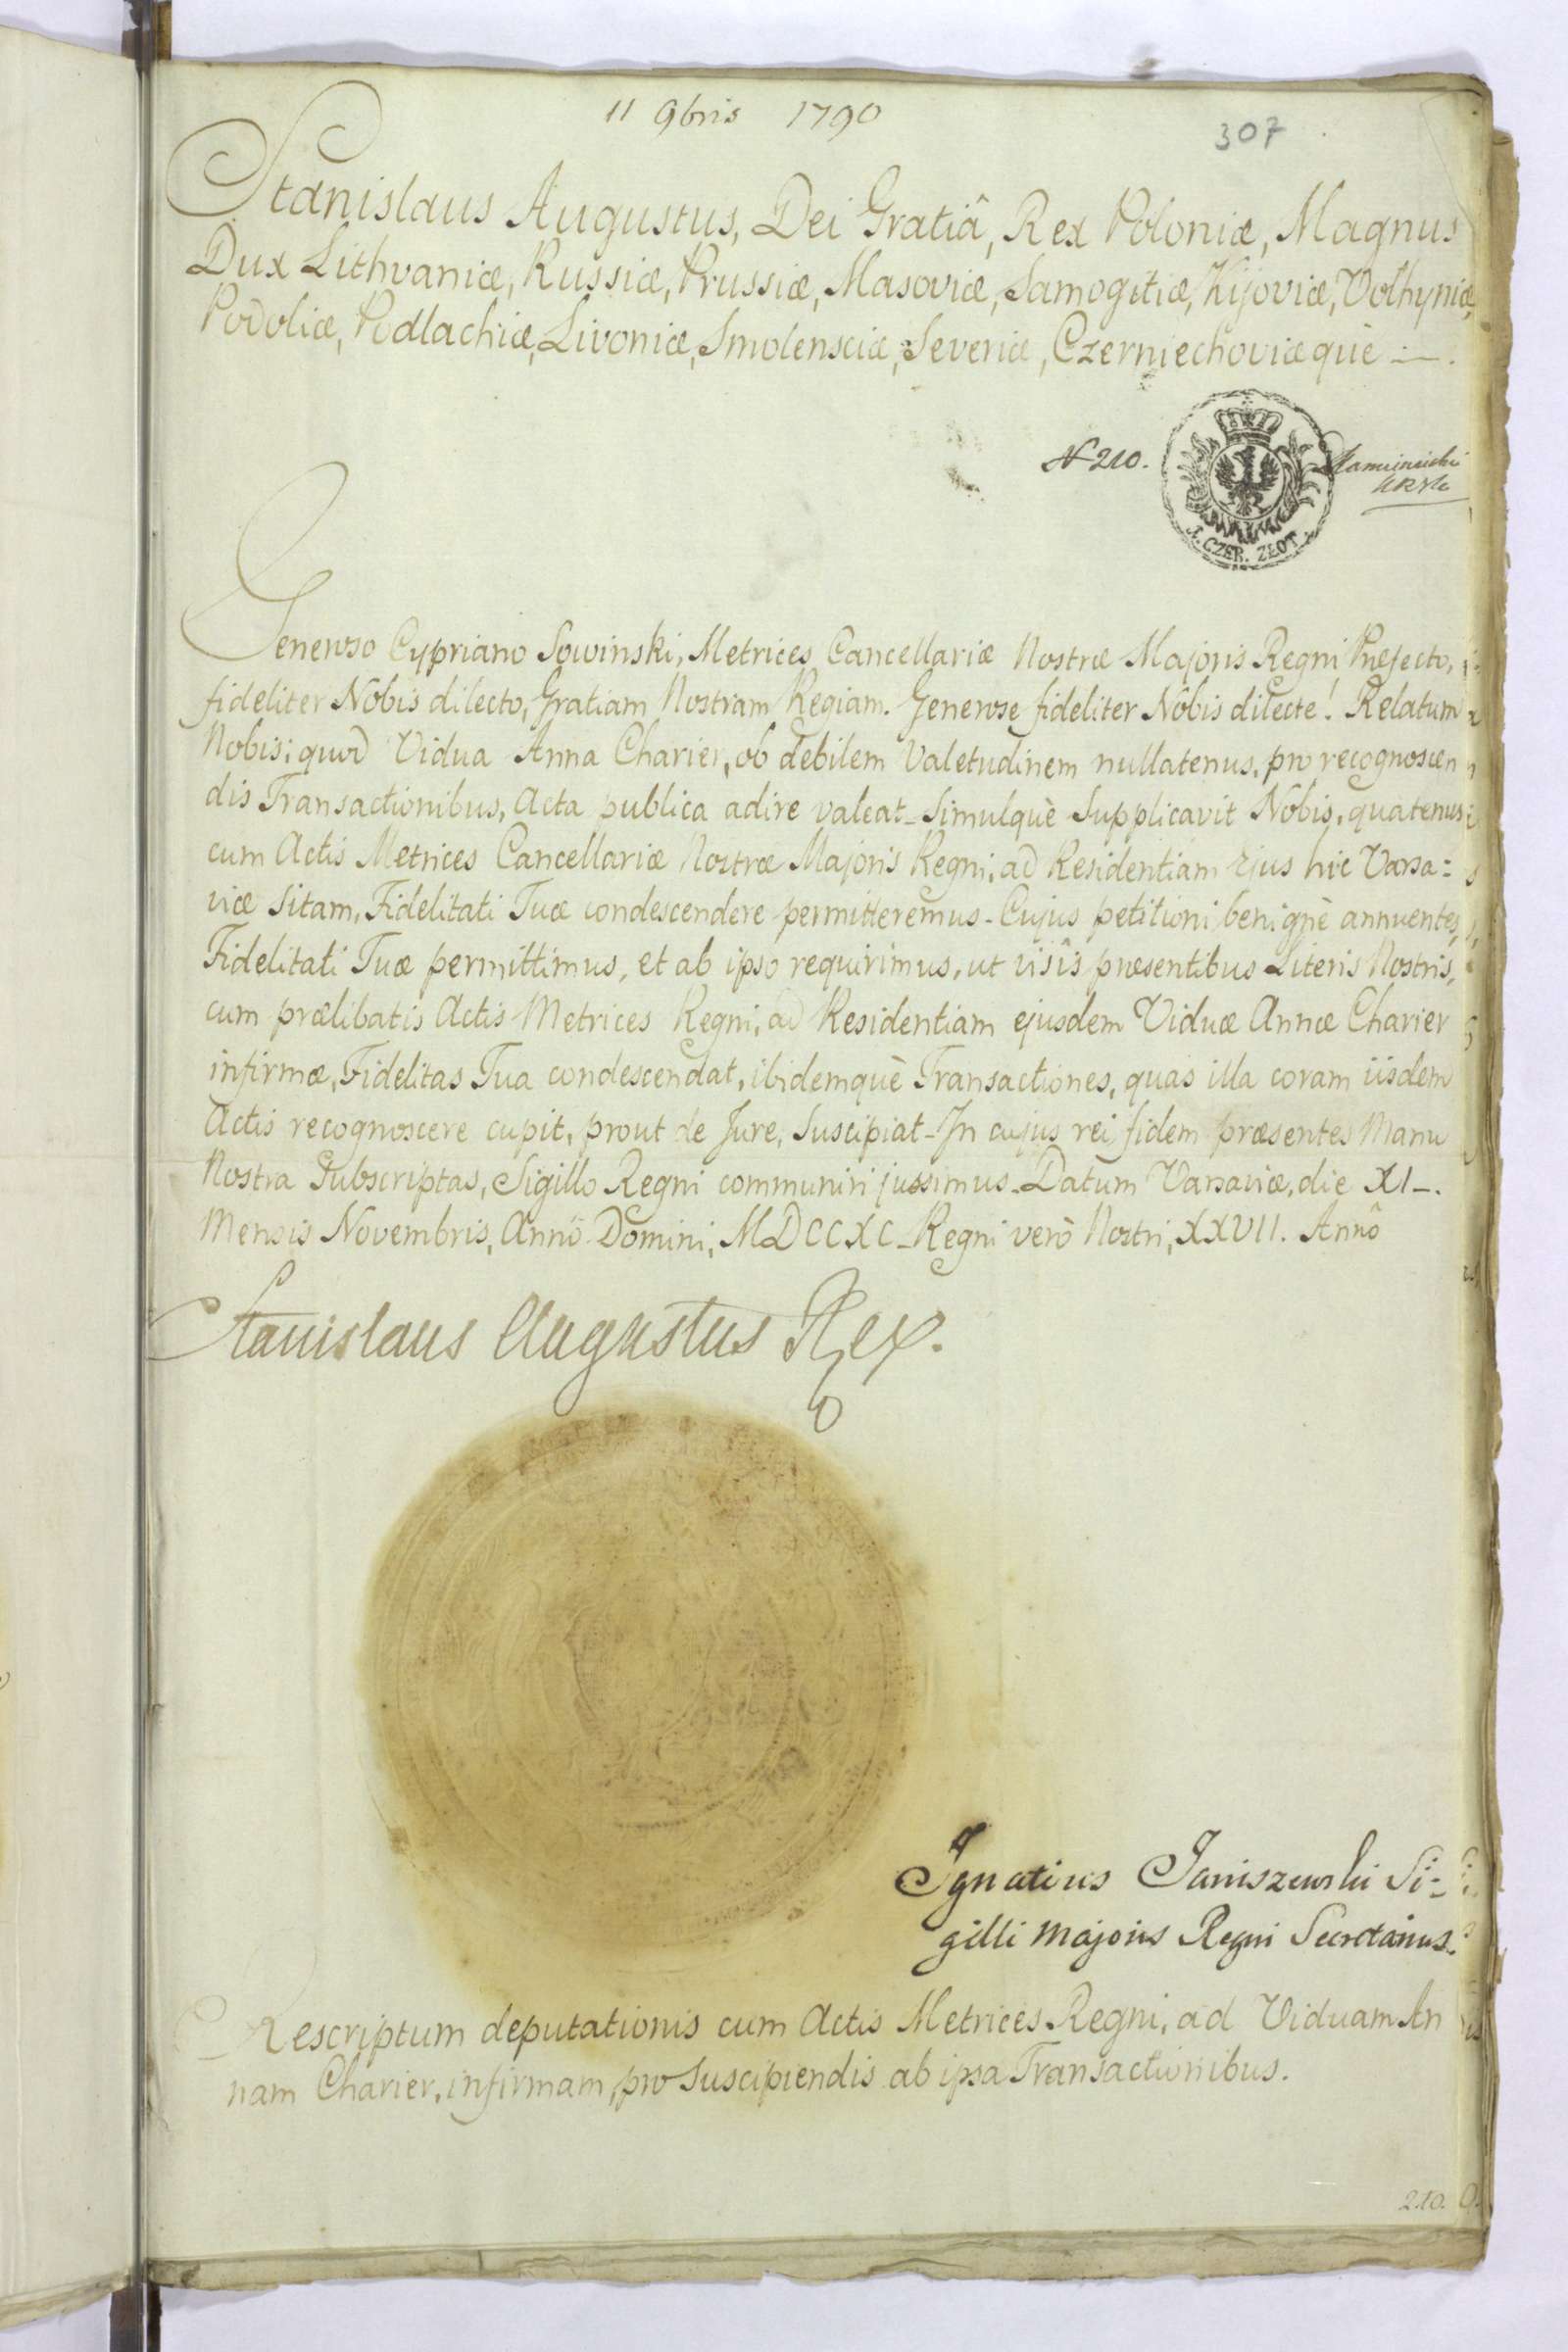 11 9bris 1790
307
Stanislaus Augustus, Dei Gratiâ, Rex Poloniæ, Magnus
Dux Lithvaniæ, Russiæ, Prussiæ, Masoviæ, Samogitiæ, Kijoviæ, Volhyniæ,
Podoliæ, Podlachiæ, Livoniæ, Smolensciæ, Severiæ, Czerniechoviæquè
N 210.
1. CZER. ZŁOT.
Generoso Cypriano Sowinski, Metrices Cancellariæ Nostræ Majoris Regni Præfecto,
fideliter Nobis dilecto, Gratiam Nostram Regiam. Generose fideliter Nobis dilecte! Relatum
Nobis: quod Vidua Anna Charier, ob debilem Valetudinem nullatenus, pro recognoscen
dis Transactionibus, Acta publica adire valeat_ Simulquè Supplicavit Nobis, quatenus
cum Actis Metrices Cancellariæ Nostræ Majoris Regni, ad Residentiam Ejus hic Varsa:
viæ Sitam, Fidelitati Tuæ condescendere permitteremus_ Cujus petitioni benignè annuentes,
Fidelitati Tuæ permittimus, et ab ipso requirimus, ut visîs præsentibus Literis Nostris,
cum prælibatis Actis Metrices Regni, ad Residentiam ejusdem Viduæ Annæ Charier
infirmæ, Fidelitas Tua condescendat, ibidemquè Transactiones, quas illa coram iisdem
Actis recognoscere cupit, prout de Jure, Suscipiat_ In cujus rei fidem præsentes Manu
Nostra Subscriptas, Sigillo Regni communiri jussimus_ Datum Varsaviæ, die XI_.
Mensis Novembris, Annô Domini, MDCCXC_ Regni verò Nostri, XXVII. Annô
Stanislaus Augustus Rex.
Ignatius Janiszewski Si:
gilli Majoris Regni Secretarius.
Rescriptum deputationis cum Actis Metrices Regni, ad Viduam An
nam Charier, infirmam, pro Suscipiendis ab ipsa Transactionibus.
210.